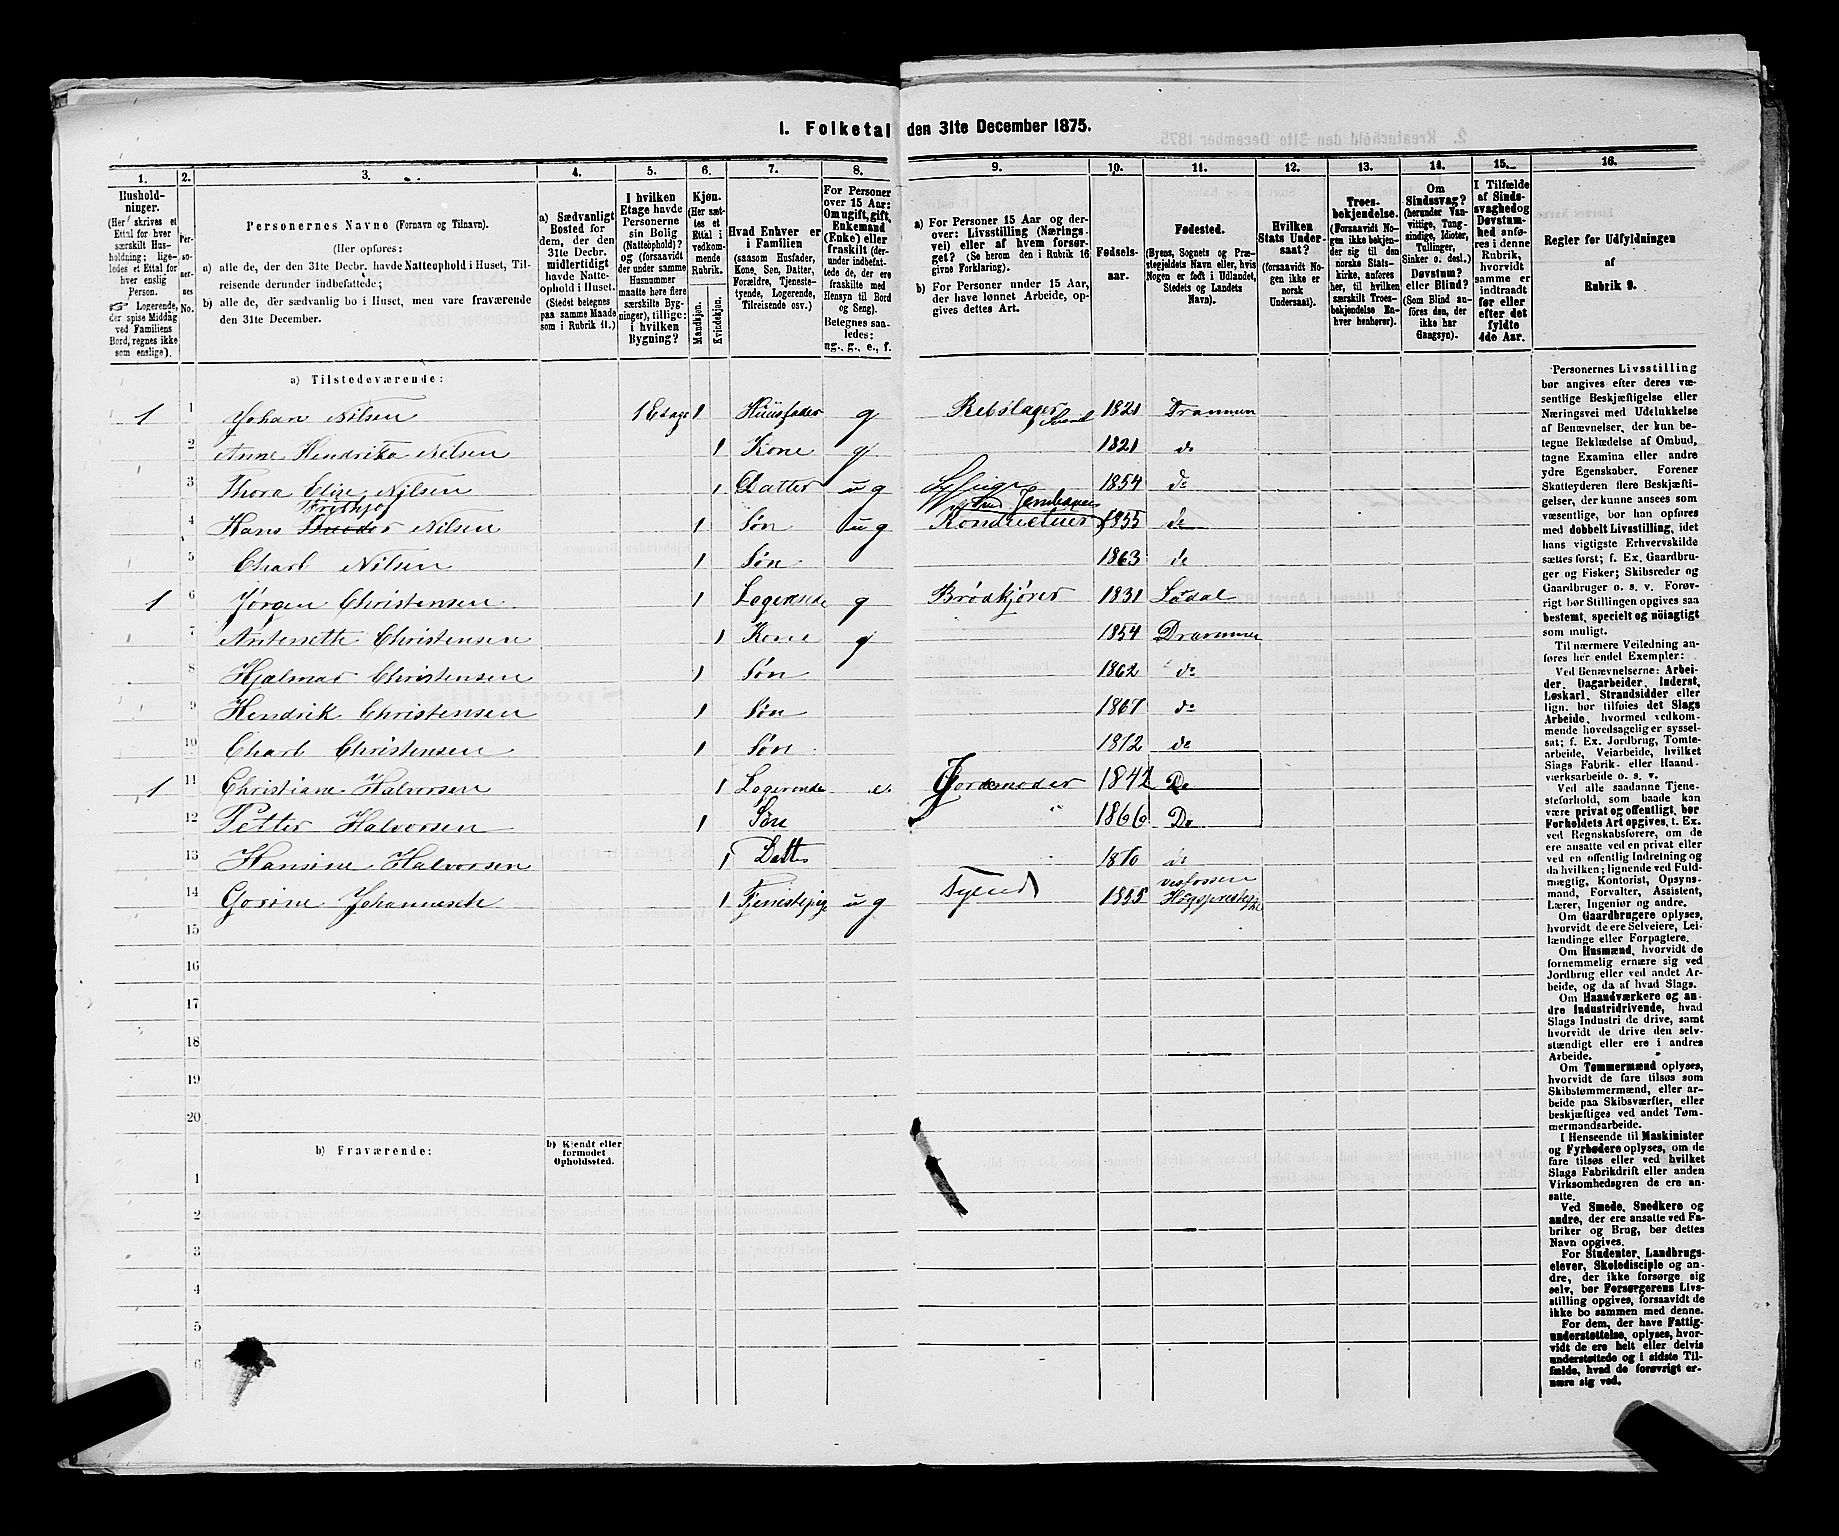 1. Folketal den 31te December 1875.
1. 2. 3. 4. 5. 6. 7. 8. 9. 10. 11. 12. 13. 14. 15. 16.
Husholdninger.
(Her skrives et
Ettal for hver
særskilt Husholdning;
ligeledes et Ettal for
enslig
Person.
Logerende,
der spise Middag
ved Familiens
Bord, regnes ikke
som enslige).
Personernes No.
Personernes Navne (Fornavn og Tilnavn).
(Her opføres:
a) alle de, der den 31te Decbr. havde Natteophold i Huset, Tilreisende
derunder indbefattede;
b) alle de, der sædvanlig bo i Huset, men vare fraværende
den 31te December.
a) Sædvanligt
Bosted for
dem, der den
31te Decbr.
midlertidigt
havde Natteophold
i Huset.
(Stedet betegnes
paa samme Maade
som i Rubrik 11.)
I hvilken
Etage havde
Personerne
sin Bolig
(Natteophold)?
og (forsaavidt
der under samme
Husnummer
maatte høre flere
særskilte Bygninger),
tillige:
i hvilken
Bygning?
Kjøn.
(Her sættes
et
Ettal i
vedkommende
Rubrik.
Mandkjøn.
Kvindekjøn.
Hvad Enhver er
i Familien
(saasom Husfader,
Kone, Søn, Datter,
Forældre, Tjenestetyende,
Logerende,
Tilreisende osv.)
For Personer
over 15 Aar:
Om ugift, gift,
Enkemand
(Enke) eller
fraskilt (derunder
indbefattede
de, der ere
fraskilte med
Hensyn til Bord
og Seng).
Betegnes saaledes:
ug., g., e., f.
a) For Personer 15 Aar og derover:
Livsstilling (Næringsvei)
eller af hvem forsørget?
(Se herom den i Rubrik 16
givne Forklaring).
b) For Personer under 15 Aar,
der have lønnet Arbeide, opgives
dettes Art.
Fødselsaar.
Fødested.
(Byens, Sognets og Præstegjeldets
Navn eller, hvis
Nogen er født i Udlandet,
Stedets og Landets
Navn).
Hvilken
Stats Undersaat?
(forsaavidt Nogen
ikke er
norsk
Undersaat).
Troesbekjendelse.
(Forsaavidt Nogen
ikke bekjender
sig til den
norske Statskirke,
anføres
her, til hvilken
særskilt Troesbekjendelse
Enhver
henhører).
Om
Sindssvag?
(herunder Vanvittige,
Tungsindige,
Idioter,
Tullinger,
Sinker o. desl.)
Døvstum?
eller Blind?
(Som Blind anføres
den, der
ikke har
Gangsyn).
I Tilfælde
af Sindssvaghed
og
Døvstumhed
anføres
i denne
Rubrik,
hvorvidt
samme er
indtraadt
før eller
efter det
fyldte
4de Aar.
Regler for Udfyldningen
af
Rubrik 9.
a) Tilstedeværende:
1 1 Johan Nilsen 1 Etage 1 Huusfader g Rebslager Svend 1821 Drammen
2 Anne Hendrika Nilsen 1 Kone g 1821 do
3 Thora Elise Nilsen 1 Datter ug Syerige 1854 do
Frithjof
4 Hans Nilsen 1 Søn ug Konducteur ved Jernbanen 1855 do
5 Charl Nilsen 1 Søn 1863 do
1 6 Jørgen Christensen 1 Logerende g Brødkjører 1831 Lødal
7 Antonette Christensen 1 Kone g 1854 Drammen
8 Hjalmar Christensen 1 Søn 1862 do
9 Hendrik Christensen 1 Søn 1867 do
10 Charl Christensen 1 Søn 1872 do
1 11 Christiane Halvorsen 1 Logerende e. Jordemoder 1842 Do
12 Petter Halvorsen 1 Søn " 1866 Do
13 Hansine Halvorsen 1 Datter 1870 do
14 Gorine 1 Tjenestepige ug Tyende 1855 Vesfossen
15
16
17
18
19
20
b) Fraværende:
b) Kjendt eller
formodet
Opholdssted.
1
2
3
4
5
6
Personernes Livsstilling
bør angives efter deres væsentlige
Beskjæftigelse eller
Næringsvei med Udelukkelse
af Benævnelser, der kun betegne
Beklædelse af Ombud,
tagne Examina eller andre
ydre Egenskaber. Forener
Skatteyderen flere Beskjæftigelser,
der kunne ansees som
væsentlige, bør han opføres
med dobbelt Livsstilling, idet
hans vigtigste Erhvervskilde
sættes først; f. Ex. Gaardbruger
og Fisker; Skibsreder og
Gaardbruger o. s. v. Forøvrigt
bør Stillingen opgives saa
bestemt, specielt og nöiagtigt
som muligt.
Til nærmere Veiledning anføres
her endel Exempler:
Ved Benævnelserne: Arbeider,
Dagarbeider, Inderst,
Løskarl, Strandsidder eller
lign. bør tilføies det Slags
Arbeide, hvormed vedkommende
hovedsagelig er sysselsat;
f. Ex. Jordbrug, Tomtearbeide,
Veiarbeide, hvilket
Slags Fabrik- eller Haandværksarbeide
o. s. v.
Ved alle saadanne Tjenesteforhold,
som baade kan
være privat og offentligt, bør
Forholdets Art opgives, t. Ex.
ved Regnskabsførere, om de
ere ansatte ved en privat eller
ved en offentlig Indretning og
da hvilken; lignende ved Fuldmægtig,
Kontorist, Opsynsmand,
Forvalter, Assistent,
Lærer, Ingeniør og andre.
Om Gaardbrugere oplyses,
hvorvidt de ere Selveiere, Leilændinge
eller Forpagtere.
Om Husmænd, hvorvidt de
fornemmelig ernære sig ved
Jordbrug eller ved andet Arbeide,
og da af hvad Slags.
Om Haandværkere og andre
Industridrivende, hvad
Slags Industri de drive, samt
hvorvidt de drive den selvstændigt
eller ere i andres
Arbeide.
Om Tømmermænd oplyses,
hvorvidt de fare tilsøs som
Skibstømmermænd, eller arbeide
paa Skibsværfter, eller
beskjæftiges ved andet Tømmermandsarbeide.
I Henseende til Maskinister
og Fyrbødere oplyses, om de
fare tilsøs eller ved hvilket
Slags Fabrikdrift eller anden
Virksomhedsgren de ere ansatte.
Ved Smede, Snedkere og
andre, der ere ansatte ved Fabriker
og Brug, bør dettes
Navn opgives.
For Studenter, Landbrugselever,
Skoledisciple og andre,
der ikke forsørge sig
selv, bør Forsørgerens Livsstilling
opgives, forsaavidt de
ikke bo sammen med denne.
For dem, der have Fattigunderstøttelse,
oplyses, hvorvidt
de ere helt eller delvis
understøttede og i sidste Tilfælde,
hvad de forøvrigt ernære
sig ved.